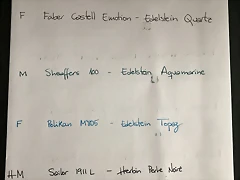 F Faber Castell Emotion - Edelstein Quartz
M Sheaffers 100 - Edelstein Aquamarine
F Pelikan M705 - Edelstein Topaz
H-M Sailor 1911 L - Herbin Perle Noire